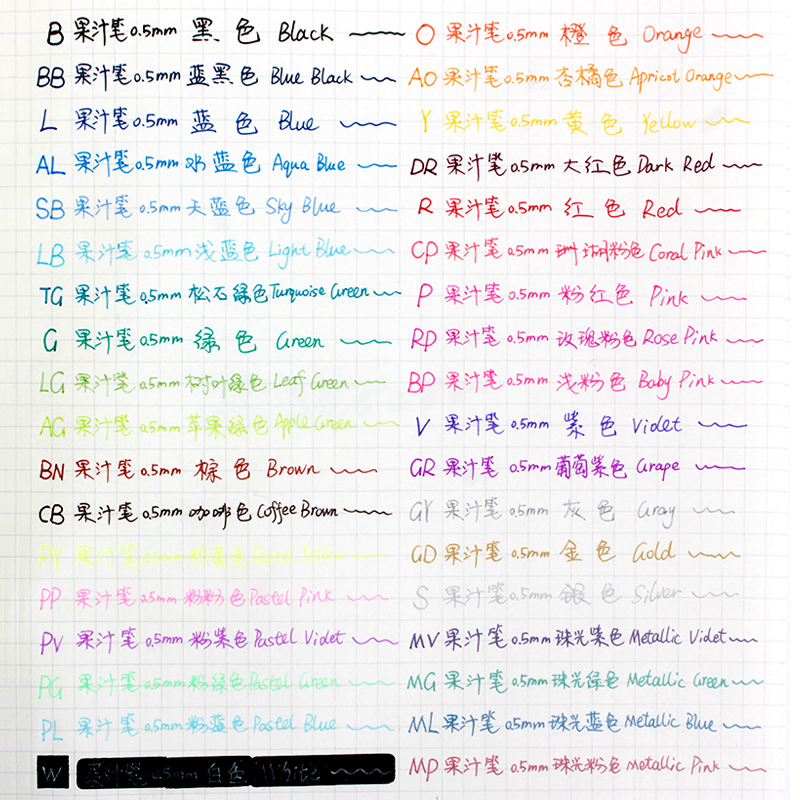 B 果汁笔 0.5mm 黑 色 Black
BB 果汁笔 0.5mm 蓝黑色 Blue Black
L 果汁笔 0.5mm 蓝 色 Blue
AL 果汁笔 0.5mm 水蓝色 Aqua Blue
SB 果汁笔 0.5mm 天蓝色 Sky Blue
LB 果汁笔 0.5mm 浅蓝色 Light Blue
TG 果汁笔 0.5mm 松石绿色 Turquoise Green
G 果汁笔 0.5mm 绿 色 Green
LG 果汁笔 0.5mm 树叶绿色 Leaf Green
AG 果汁笔 0.5mm 苹果绿色 Apple Green
BN 果汁笔 0.5mm 棕 色 Brown
CB 果汁笔 0.5mm 咖啡色 Coffee Brown
PY 果汁笔 0.5mm 粉黄色 Pastel Yellow
PP 果汁笔 0.5mm 粉粉色 Pastel Pink
PV 果汁笔 0.5mm 粉紫色 Pastel Videt
PG 果汁笔 0.5mm 粉绿色 Pastel Green
PL 果汁笔 0.5mm 粉蓝色 Pastel Blue
W 果汁笔 0.5mm 白色 White
O 果汁笔 0.5mm 橙 色 Orange
AO 果汁笔 0.5mm 杏橘色 Apricot Orange
Y 果汁笔 0.5mm 黄 色 Yellow
DR 果汁笔 0.5mm 大红色 Dark Red
R 果汁笔 0.5mm 红 色 Red
CP 果汁笔 0.5mm 珊瑚粉色 Coral Pink
P 果汁笔 0.5mm 粉红色 Pink
RP 果汁笔 0.5mm 玫瑰粉色 Rose Pink
BP 果汁笔 0.5mm 浅粉色 Baby Pink
V 果汁笔 0.5mm 紫 色 Videt
GR 果汁笔 0.5mm 葡萄紫色 Grape
GY 果汁笔 0.5mm 灰 色 Gray
GD 果汁笔 0.5mm 金 色 Gold
S 果汁笔 0.5mm 银 色 Silver
MV 果汁笔 0.5mm 珠光紫色 Metallic Videt
MG 果汁笔 0.5mm 珠光绿色 Metallic Green
ML 果汁笔 0.5mm 珠光蓝色 Metallic Blue
MP 果汁笔 0.5mm 珠光粉色 Metallic Pink